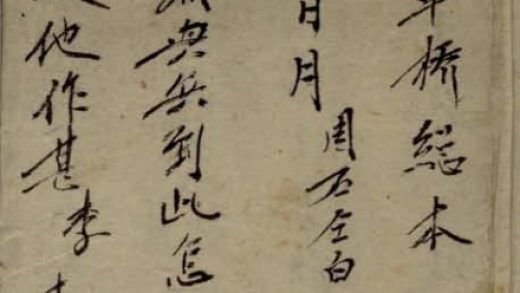 橋総本
日月
周石仝白
興兵到此怎
他作甚李